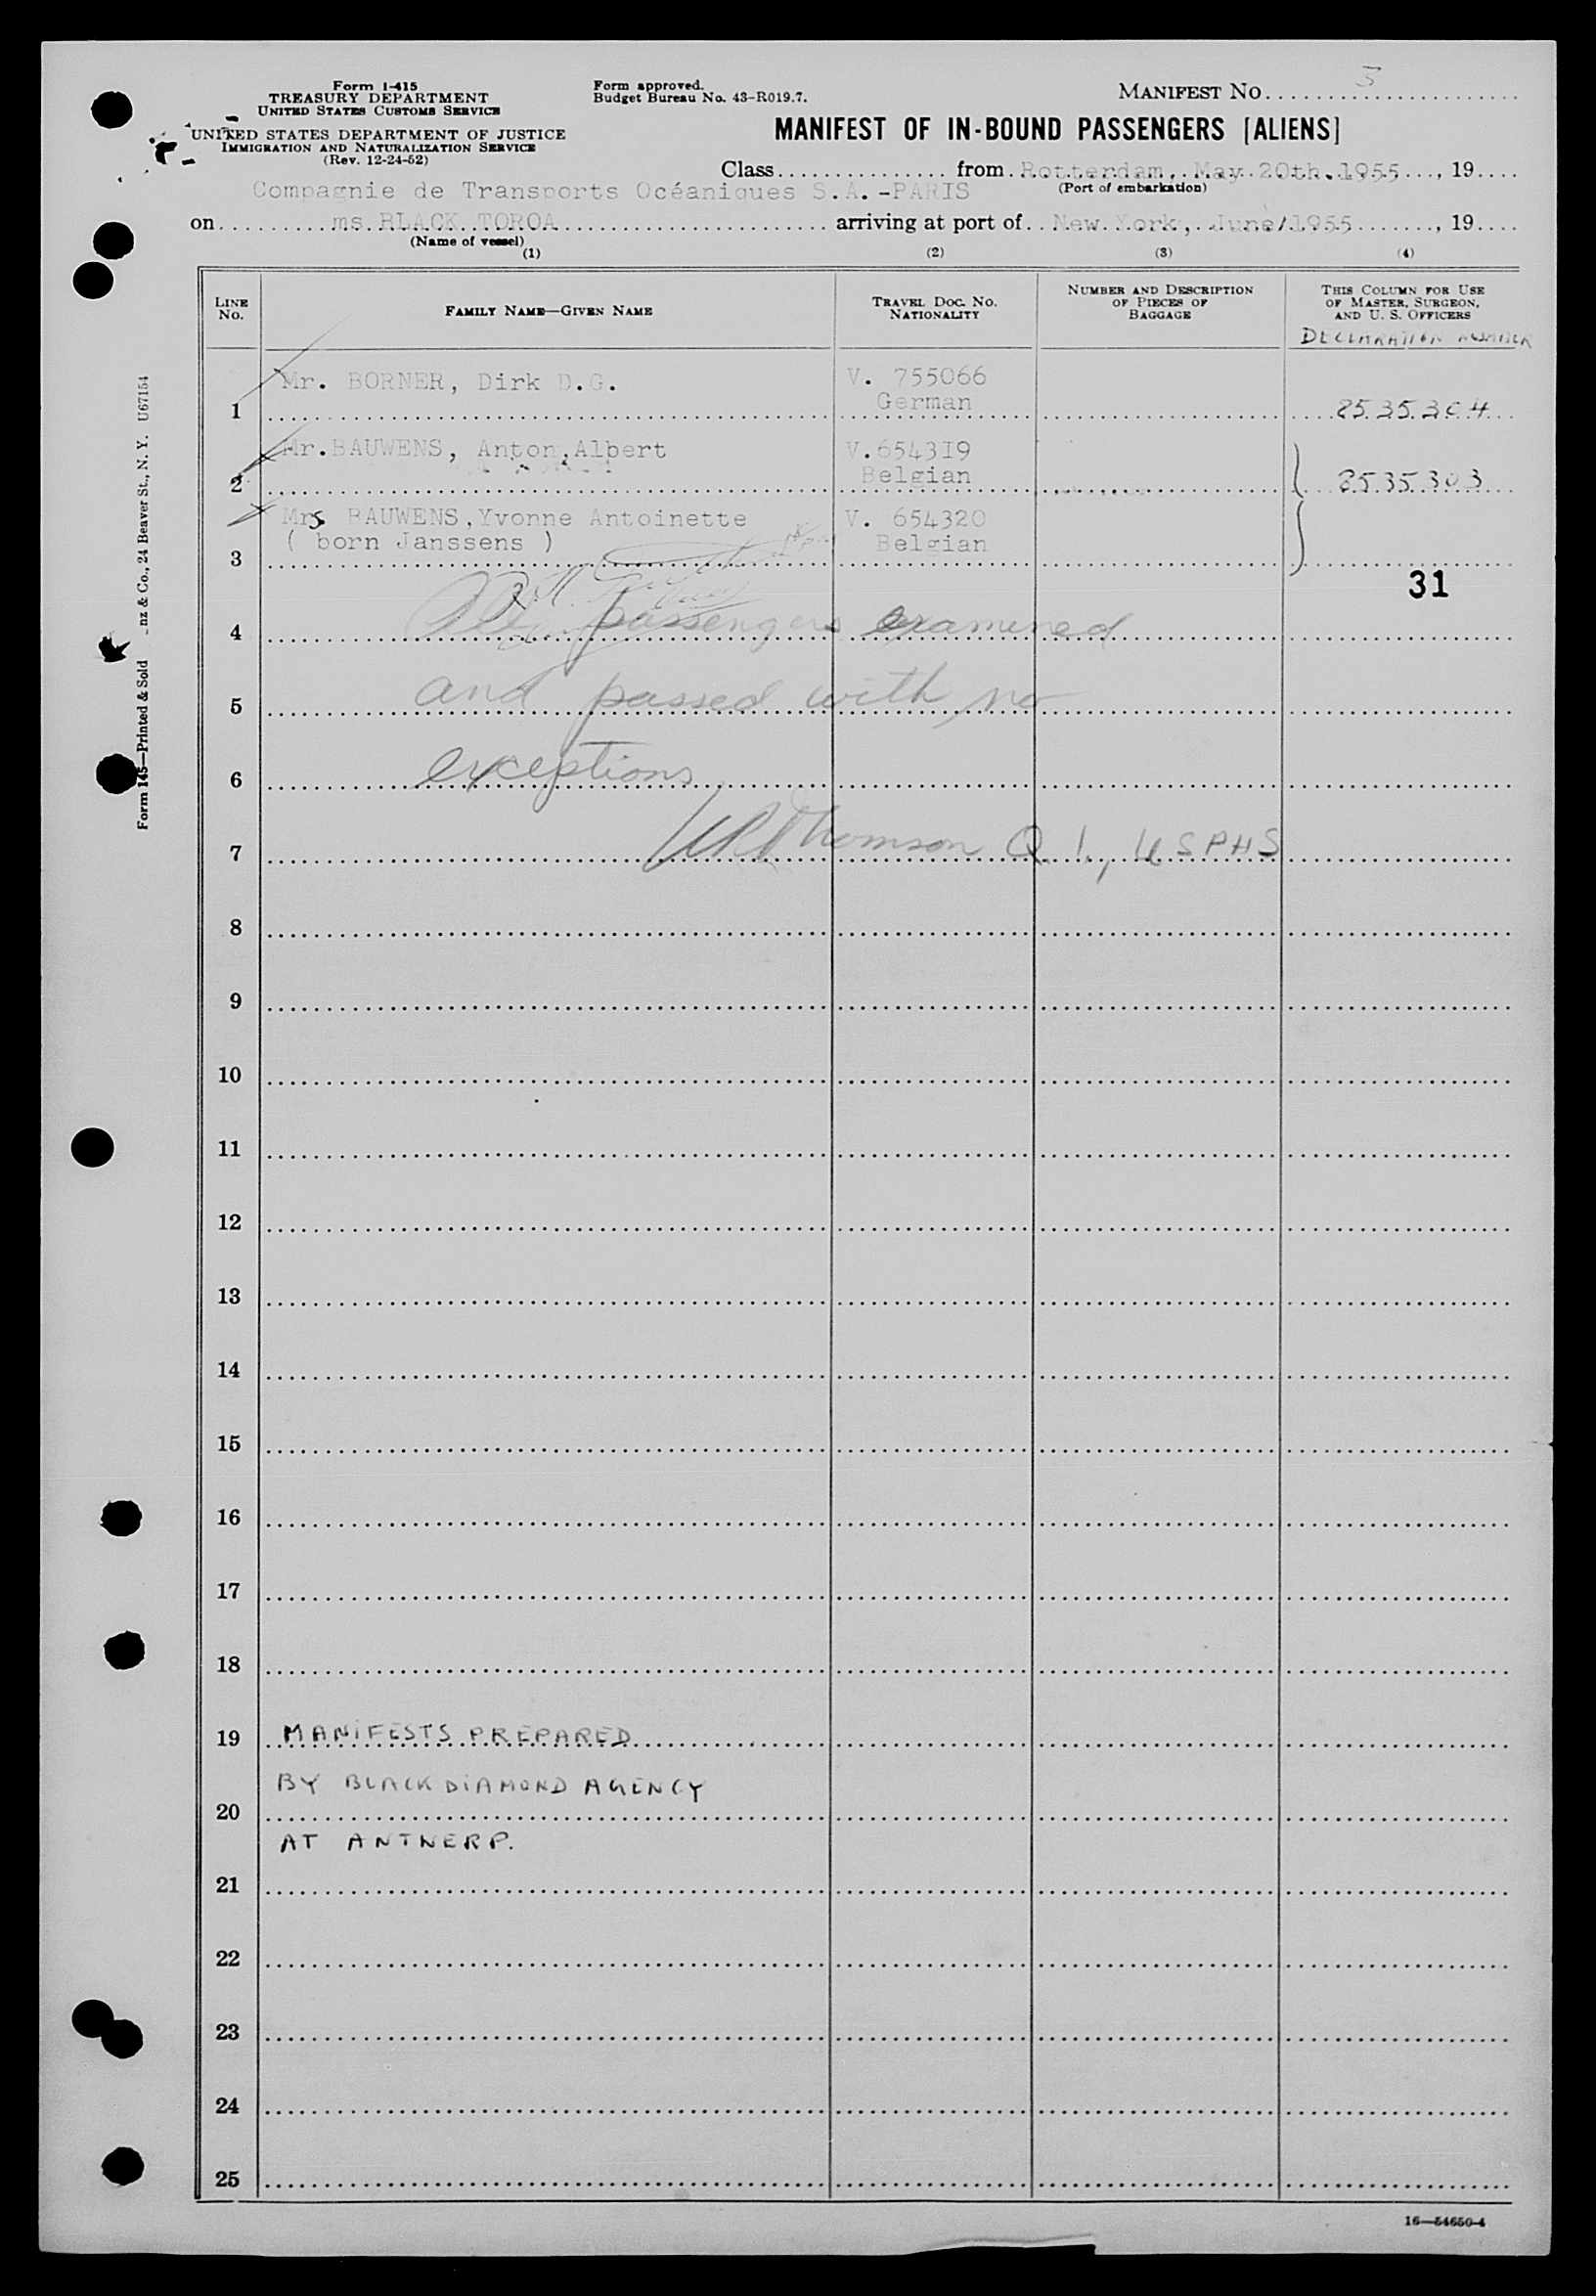 Form I-415
TREASURY DEPARTMENT
UNITED STATES CUSTOMS SERVICE
UNITED STATES DEPARTMENT OF JUSTICE
IMMIGRATION AND NATURALIZATION SERVICE
(Rev. 12-24-52)
Form approved.
Budget Bureau No. 43-R019.7.
MANIFEST NO. 3
MANIFEST OF IN-BOUND PASSENGERS [ALIENS]
Class from Rotterdam, May 20th.1955, 19
(Port of embarkation)
Compagnie de Transports Océaniques S.A.-PARIS
on ms BLACK TOROA arriving at port of New York, June/1955, 19
(Name of vessel)
(1) (2) (3) (4)
LINE NO.
FAMILY NAME—GIVEN NAME
TRAVEL DOC. NO.
NATIONALITY
NUMBER AND DESCRIPTION
OF PIECES OF
BAGGAGE
THIS COLUMN FOR USE
OF MASTER, SURGEON,
AND U. S. OFFICERS
DECLARATION NUMBER
Mr. BORNER, Dirk D.G. V. 755066
1 German 8535304
Mr.BAUWENS, Anton,Albert V.654319
2 Belgian 8535303
Mrs BAUWENS,Yvonne Antoinette V. 654320
( born Janssens ) Belgian
3
31
4 All passengers examined
5 and passed with no
6 exceptions
7 Thomson Q.I., USPHS
8
9
10
11
12
13
14
15
16
17
18
19 MANIFESTS PREPARED
BY BLACK DIAMOND AGENCY
20
AT ANTWERP.
21
22
23
24
25
16—54650-4
Form 145—Printed & Sold nz & Co., 24 Beaver St., N. Y. U67154